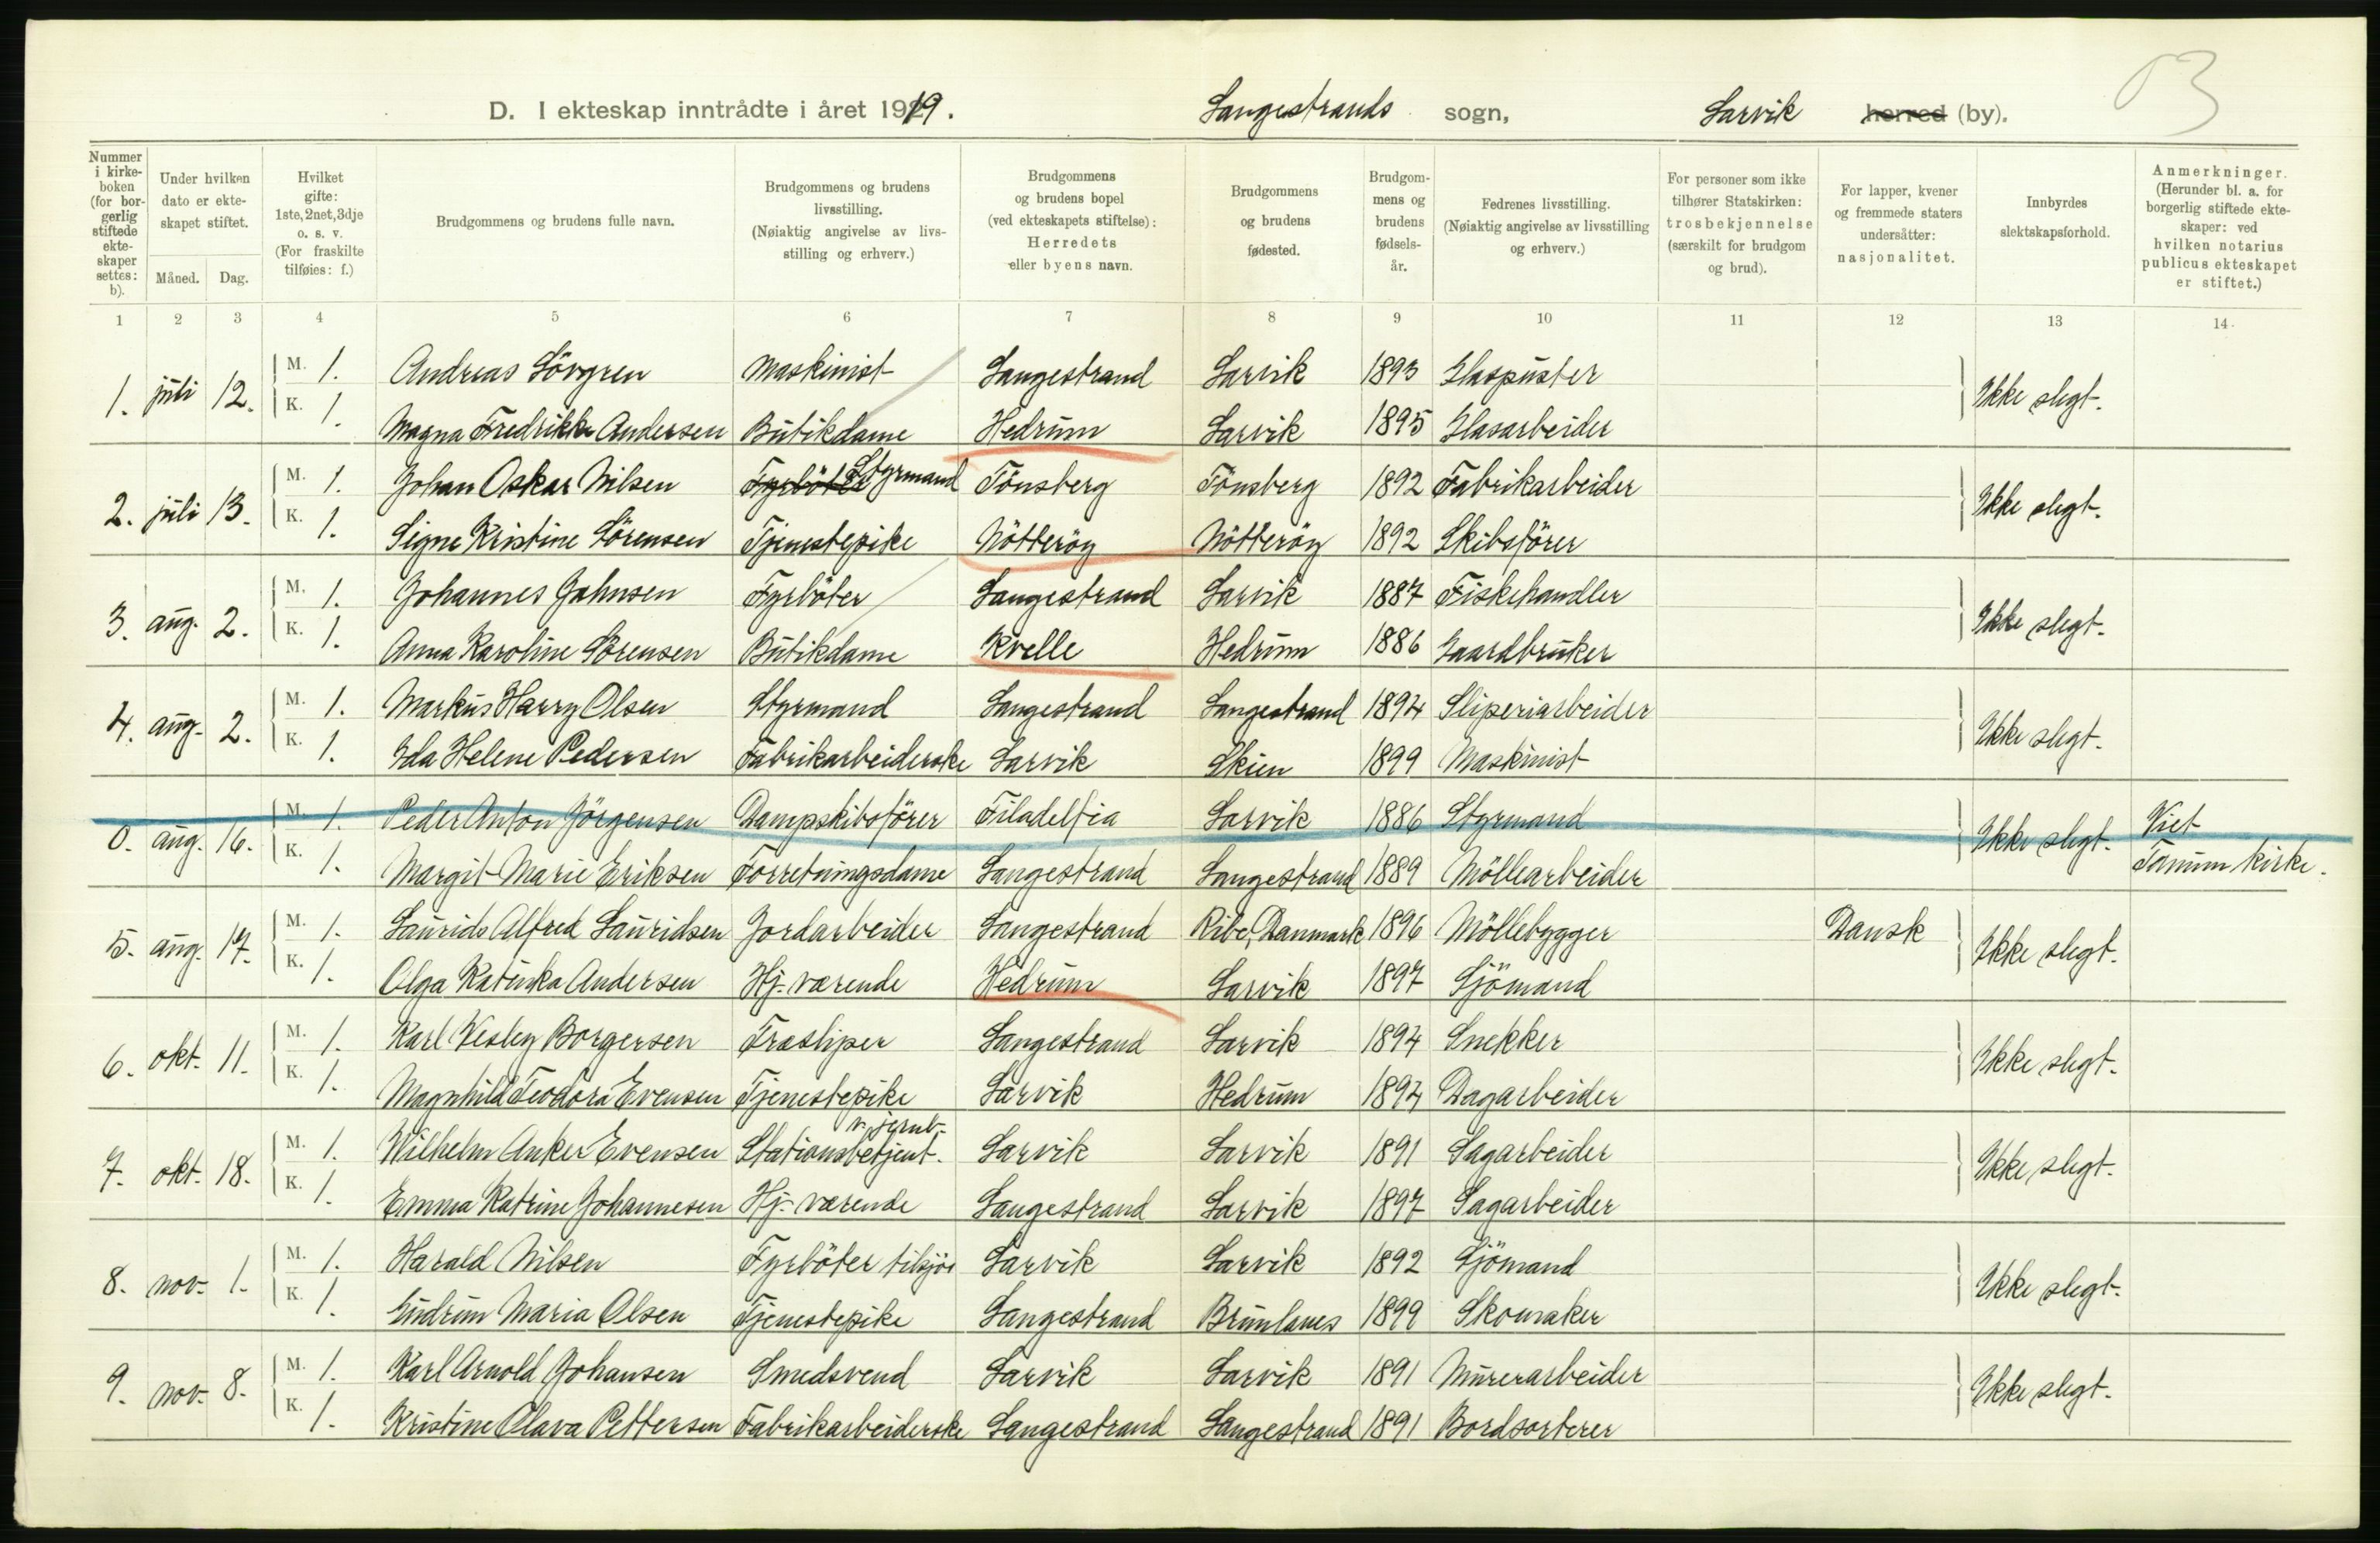 53
D. I ekteskap inntrådte i året 1919. Langestrands sogn, Larvik herred (by).
Nummer i kirkeboken (for borgerlig stiftede ekteskaper settes: b).
Under hvilken dato er ekteskapet stiftet.
Måned. Dag.
Hvilket gifte: 1ste, 2net, 3dje o. s. v. (For fraskilte tilføies: f.)
Brudgommens og brudens fulle navn.
Brudgommens og brudens livsstilling. (Nøiaktig angivelse av livsstilling og erhverv.)
Brudgommens og brudens bopel (ved ekteskapets stiftelse): Herredets eller byens navn.
Brudgommens og brudens fødested.
Brudgommens og brudens fødselsår.
Fedrenes livsstilling. (Nøiaktig angivelse av livsstilling og erhverv.)
For personer som ikke tilhører Statskirken: trosbekjennelse (særskilt for brudgom og brud).
For lapper, kvener og fremmede staters undersåtter: nasjonalitet.
Innbyrdes slektskapsforhold.
Anmerkninger. (Herunder bl. a. for borgerlig stiftede ekteskaper: ved hvilken notarius publicus ekteskapet er stiftet.)
1 2 3 4 5 6 7 8 9 10 11 12 13 14
1. juli 12. M. 1. Andreas Lövgren Maskinist Langestrand Larvik 1893 Glaspuster Ikke slegt.
K. 1. Magna Fredrikke Andersen Butikdame Hedrum Larvik 1895 Glasarbeider
2. juli 13. M. 1. Johan Oskar Nilsen Fyrböter Styrmand Tönsberg Tönsberg 1892 Fabrikarbeider Ikke slegt.
K. 1. Signe Kristine Sörensen Tjenestepike Nötteröy Nötteröy 1892 Skibsförer
3. aug. 2. M. 1. Johannes Johnsen Fyrböter Langestrand Larvik 1887 Fiskehandler Ikke slegt.
K. 1. Anna Karoline Sörensen Butikdame Kvelle Hedrum 1886 Gaardbruker
4. aug. 2. M. 1. Markus Harry Olsen Styrmand Langestrand Langestrand 1894 Sliperiarbeider Ikke slegt.
K. 1. Ida Helene Pedersen Fabrikarbeiderske Larvik Skien 1899 Maskinist
0. aug. 16. M. 1. Peder Anton Jörgensen Dampskibsförer Filadelfia Larvik 1886 Styrmand Ikke slegt. Viet
K. 1. Margit Marie Eriksen Forretningsdame Langestrand Langestrand 1889 Möllearbeider Tanum kirke.
5. aug. 17. M. 1. Laurids Alfred Lauridsen Jordarbeider Langestrand Ribe, Danmark 1896 Möllebygger Dansk Ikke slegt.
K. 1. Olga Katinka Andersen Hj. værende Hedrum Larvik 1897 Sjömand
6. okt. 11. M. 1. Karl Wesley Borgersen Træsliper Langestrand Larvik 1894 Snekker Ikke slegt.
K. 1. Magnhild Teodora Evensen Tjenestepike Larvik Hedrum 1894 Dagarbeider
v. jernb.
7. okt. 18. M. 1. Wilhelm Anker Evensen Stationsbetjent. Larvik Larvik 1891 Sagarbeider Ikke slegt.
K. 1. Emma Katrine Johannesen Hj. værende Langestrand Larvik 1897 Sagarbeider
8. nov. 1. M. 1. Harald Nilsen Fyrböter tilsjös Larvik Larvik 1892 Sjömand Ikke slegt.
K. 1. Gudrun Maria Olsen Tjenestepike Langestrand Brunlanes 1899 Skomaker
9. nov. 8. M. 1. Karl Arnold Johansen Smedsvend Larvik Larvik 1891 Murerarbeider Ikke slegt.
K. 1. Kristine Olava Pettersen Fabrikarbeiderske Langestrand Langestrand 1891 Bordsorterer